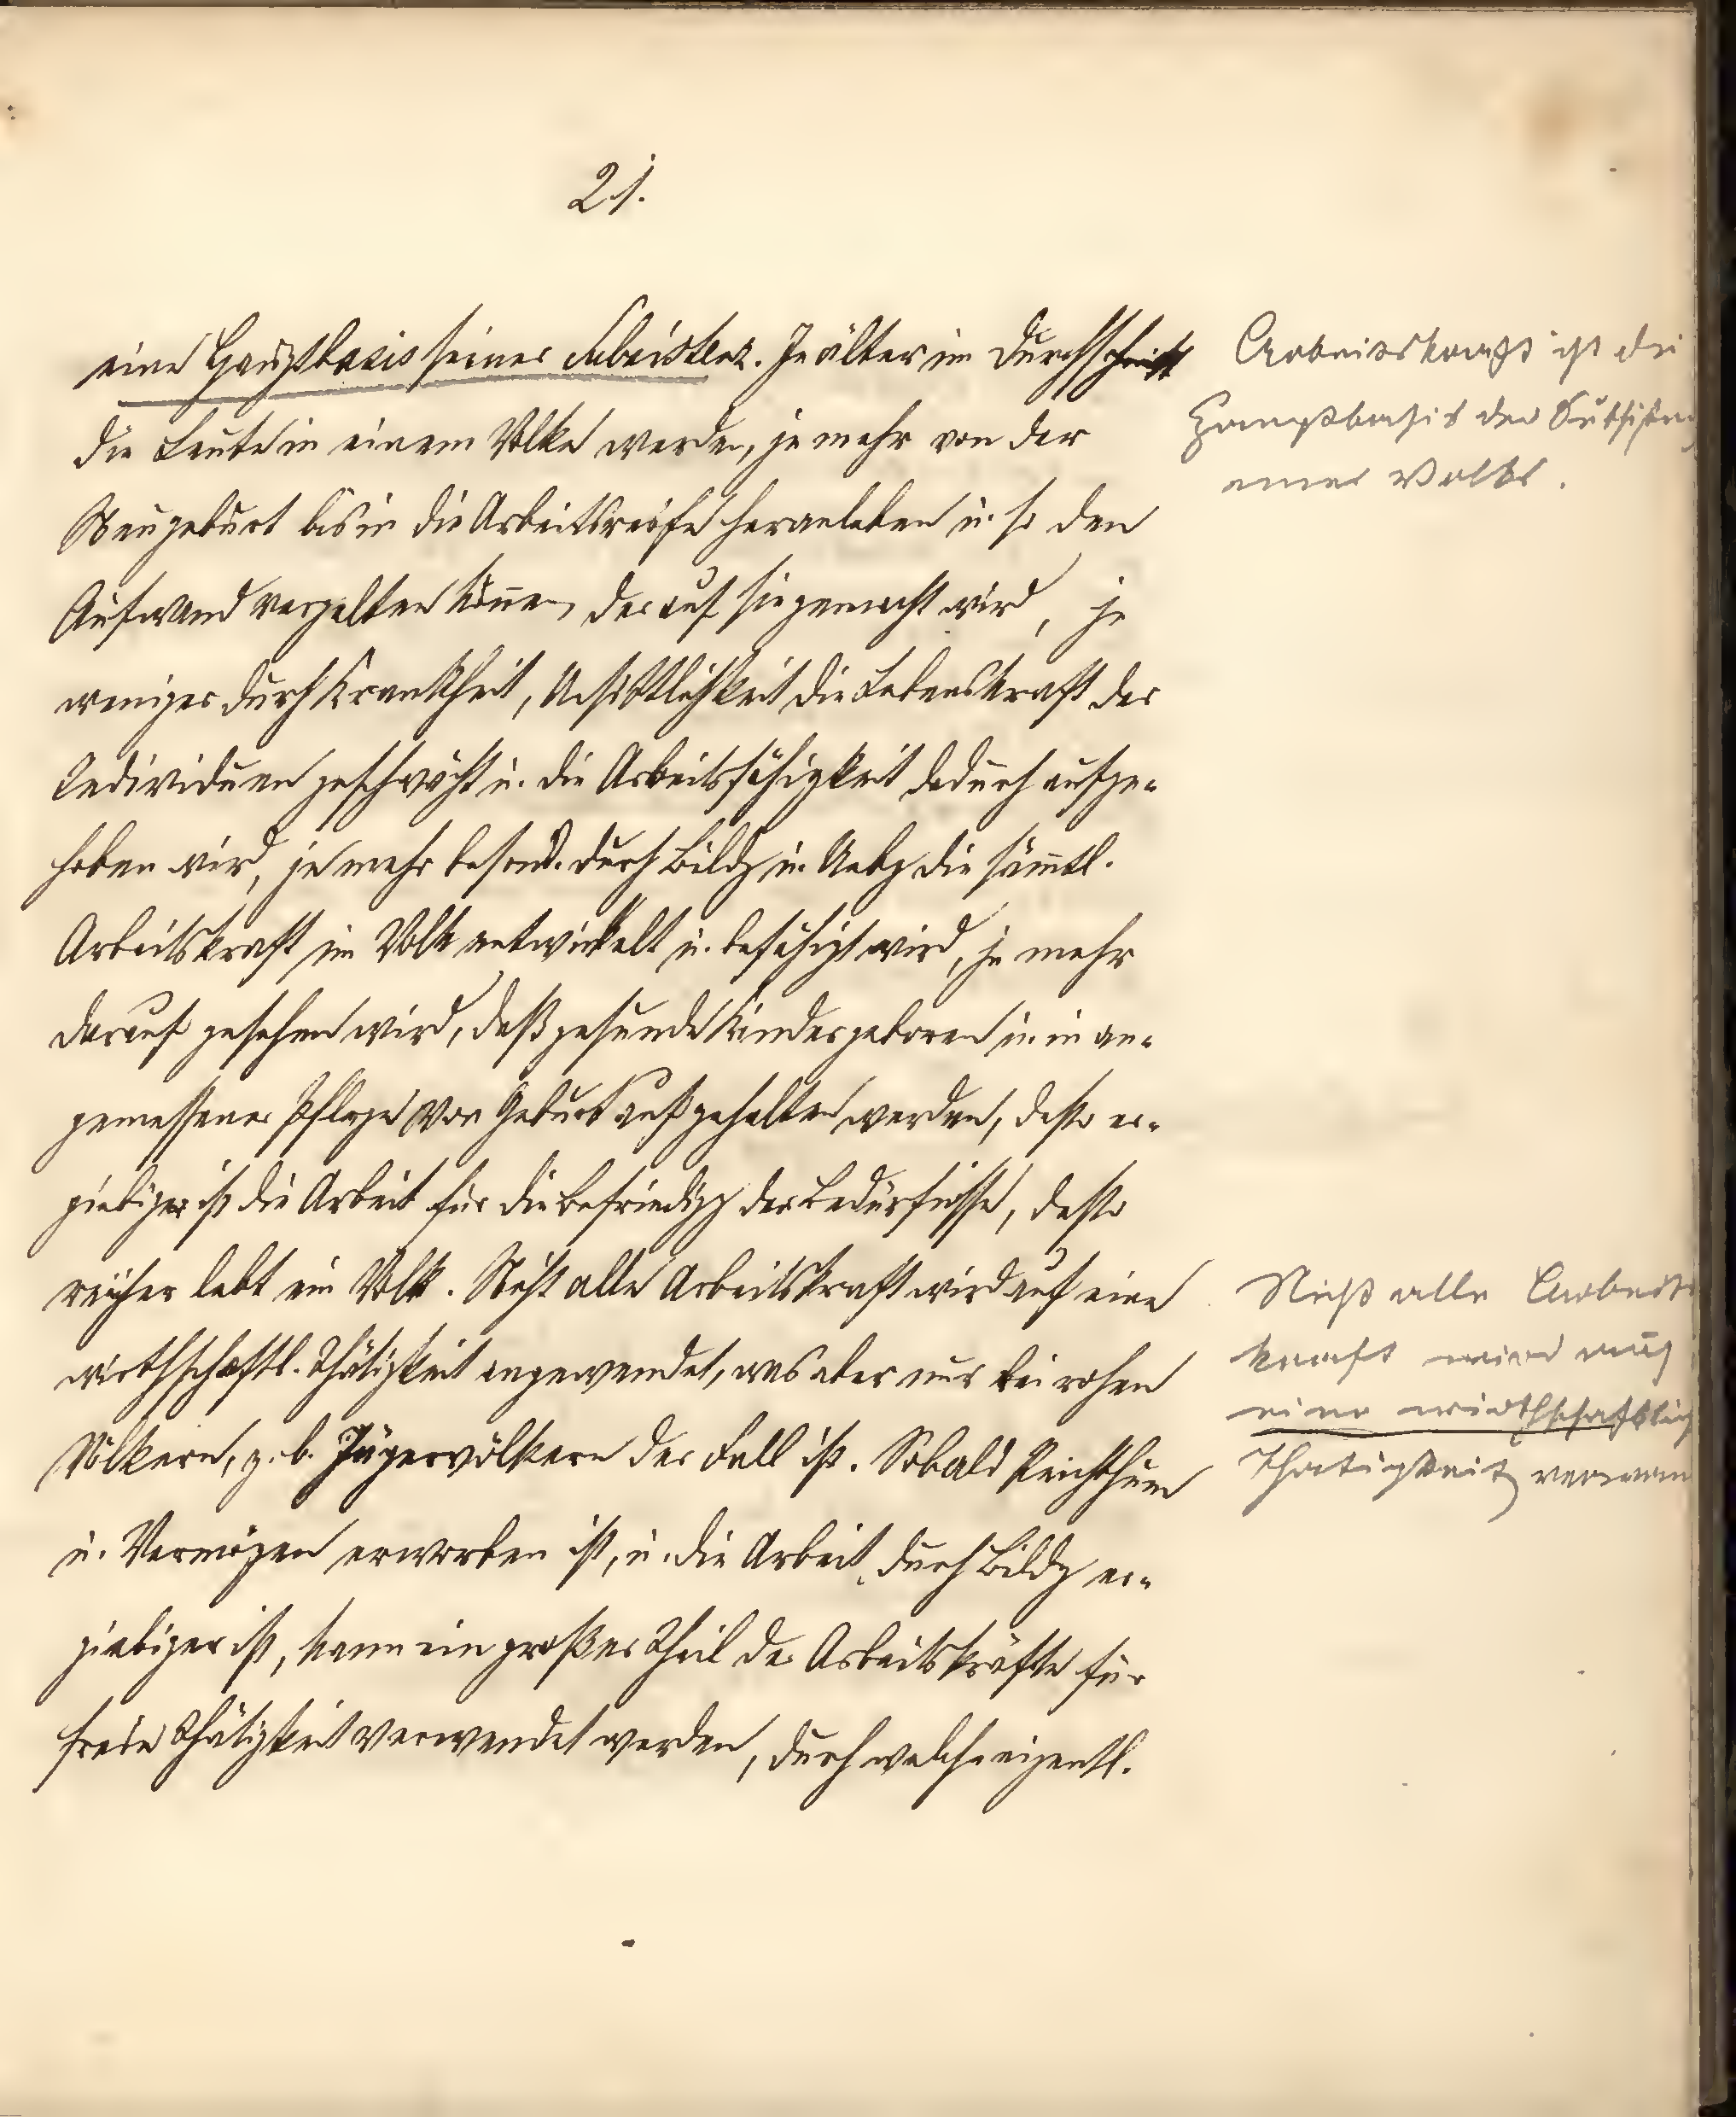 21.
eine Hauptbasis seiner Subsistenz. Je älter im Durchschnitt
die Leute in einem Volke werden, je mehr von der
Neugeburt bis in die Arbeitsreife heranleben u. so den
Aufwand vergelten können, der auf sie gemacht wird, je
weniger durch Krankheit, Unsittlichkeit die Lebenskraft der
Individuen geschwächt u. die Arbeitsfähigkeit dadurch aufge-
hoben wird, je mehr besond. durch Bildg u. Uebg die sämtl.
Arbeitskraft im Volk entwickelt u. befähigt wird, je mehr
darauf gesehen wird, daß gesunde Kinder geboren u. in an-
gemessener Pflege von Geburt auf gehalten werden, desto er-
giebiger ist die Arbeit für die Befriedigg der Bedürfnisse, desto
reicher lebt ein Volk. Nicht alle Arbeitskraft wird auf eine
wirthschaftl. Thätigkeit angewendet, was aber nur bei rohen
Völkern, z. b. Jägervölkern der Fall ist. Sobald Reichthum
u. Vermögen erworben ist, u. die Arbeit durch Bildg er-
giebiger ist, kann ein großer Theil der Arbeitskräfte für
freie Thätigkeit verwendet werden, durch welche eigentl.
Arbeitskraft ist die
Hauptbasis der Subsistenz
eines Volkes.
Nicht alle Arbeits
kraft wird auf
eine wirthschaftlich
Thätigkeit verwen